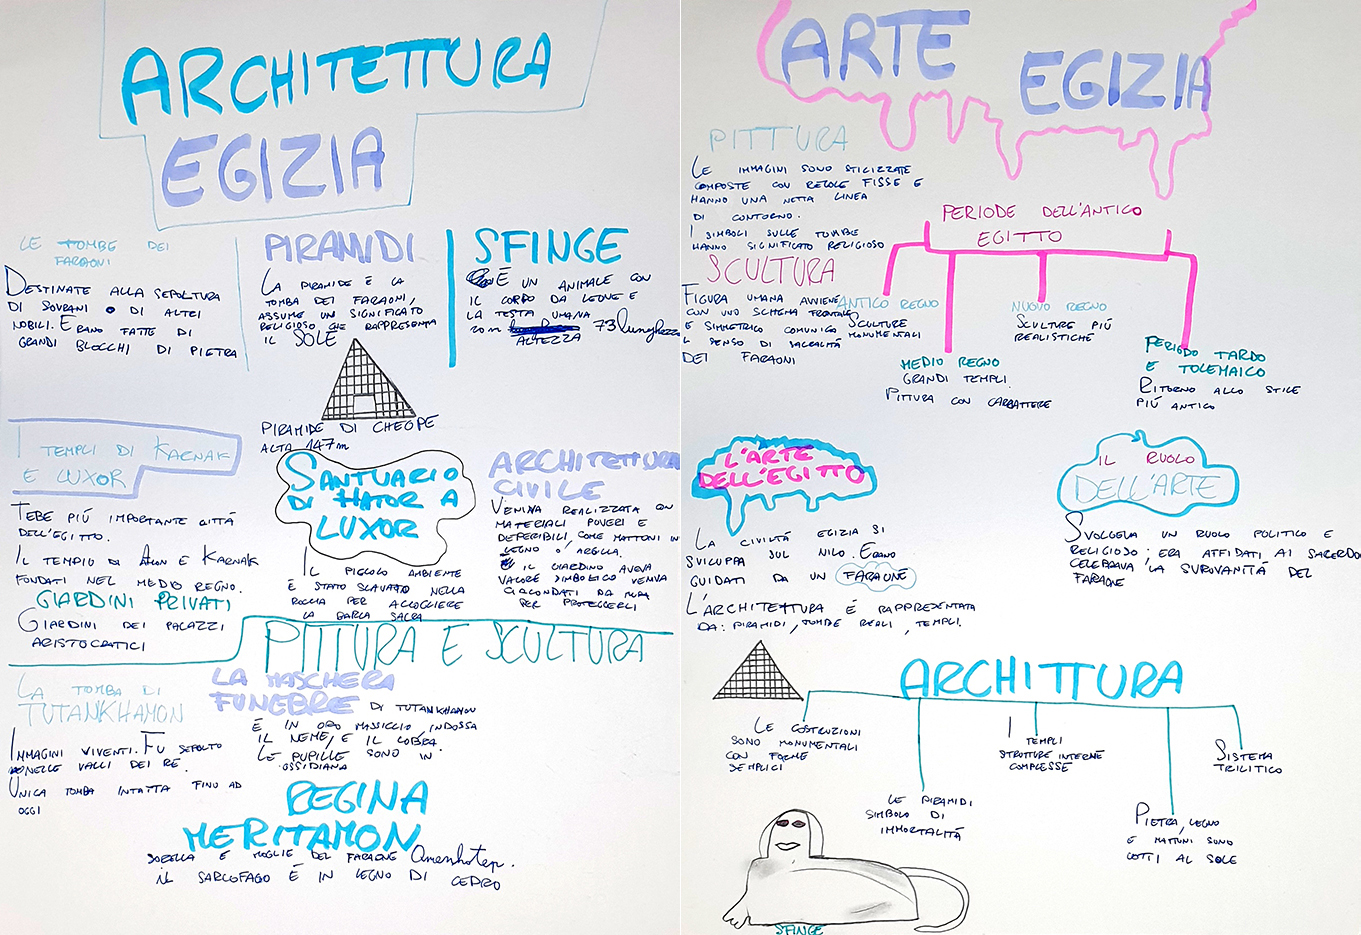 ARCHITETTURA
EGIZIA
LE TOMBE DEI
FARAONI
DESTINATE ALLA SEPOLTURA
DI SOVRANI O DI ALTRI
NOBILI. ERANO FATTE DI
GRANDI BLOCCHI DI PIETRA
PIRAMIDI
LA PIRAMIDE È LA
TOMBA DEI FARAONI,
ASSUME UN SIGNIFICATO
RELIGIOSO CHE RAPPRESENTA
IL SOLE
PIRAMIDE DI CHEOPE
ALTA 147m
SFINGE
È UN ANIMALE CON
IL CORPO DA LEONE E
LA TESTA UMANA
20 m 73 lunghezza
ALTEZZA
I TEMPLI DI KARNAK
E LUXOR
TEBE PIÚ IMPORTANTE CITTÁ
DELL'EGITTO.
IL TEMPIO DI E KARNAK
FONDATI NEL MEDIO REGNO.
GIARDINI PRIVATI
GIARDINI DEI PALAZZI
ARISTOCRATICI
SANTUARIO
DI HATOR A
LUXOR
IL PICCOLO AMBIENTE
È STATO SCAVATO NELLA
ROCCIA PER ACCOGLIERE
LA BARCA SACRA
ARCHITETTURA
CIVILE
VENIVA REALIZZATA CON
MATERIALI POVERI E
DEPERIBILI, COME MATTONI IN
LEGNO O ARGILLA.
IL GIARDINO AVEVA
VALORE SIMBOLICO VENIVA
CIRCONDATI DA MURA
PER PROTEGGERLI
PITTURA E SCULTURA
LA TOMBA DI
TUTANKHAMON
IMMAGINI VIVENTI. FU SEPOLTO
NELLE VALLI DEI RE.
UNICA TOMBA INTATTA FINO AD
OGGI
LA MASCHERA
FUNEBRE DI TUTANKHAMON
È IN ORO MASSICCIO, INDOSSA
IL NEME, E IL COBRA.
LE PUPILLE SONO IN
OSSIDIANA
REGINA
MERITAMON
SORELLA E MOGLIE DEL FARAONE Amenhotep.
IL SARCOFAGO È IN LEGNO DI CEDRO
ARTE
EGIZIA
PITTURA
LE IMMAGINI SONO STILIZZATE
COMPOSTE CON REGOLE FISSE E
HANNO UNA NETTA LINEA
DI CONTORNO.
I SIMBOLI SULLE TOMBE
HANNO SIGNIFICATO RELIGIOSO
SCULTURA
FIGURA UMANA AVVIENE
CON UNO SCHEMA FRONTALE
E SIMMETRICO COMUNICA
IL SENSO DI SACRALITÁ
DEI FARAONI
PERIODE DELL'ANTICO
EGITTO
ANTICO REGNO
SCULTURE
MONUMENTALI
MEDIO REGNO
GRANDI TEMPLI.
PITTURA CON CARBATTERE
NUOVO REGNO
SCULTURE PIÚ
REALISTICHE
PERIODO TARDO
E TOLEMAICO
RITORNO ALLO STILE
PIÚ ANTICO
L'ARTE
DELL'EGITTO
LA CIVILTÁ EGIZIA SI
SVILUPPA SUL NILO. ERANO
GUIDATI DA UN FARAONE
L'ARCHITETTURA È RAPPRESENTATA
DA: PIRAMIDI, TOMBE REALI, TEMPLI.
IL RUOLO
DELL'ARTE
SVOLGEVA UN RUOLO POLITICO E
RELIGIOSO; ERA AFFIDATI AI SACERDO
CELEBRAVA LA SUROVANITÁ DEL
FARAONE
ARCHITTURA
LE COSTRUZIONI
SONO MONUMENTALI
CON FORME
SEMPLICI
LE PIRAMIDI
SIMBOLO DI
IMMORTALITÁ
I TEMPLI
STRUTTURE INTERNE
COMPLESSE
PIETRA, LEGNO
E MATTONI SONO
COTTI AL SOLE
SISTEMA
TRILITICO
SFINGE